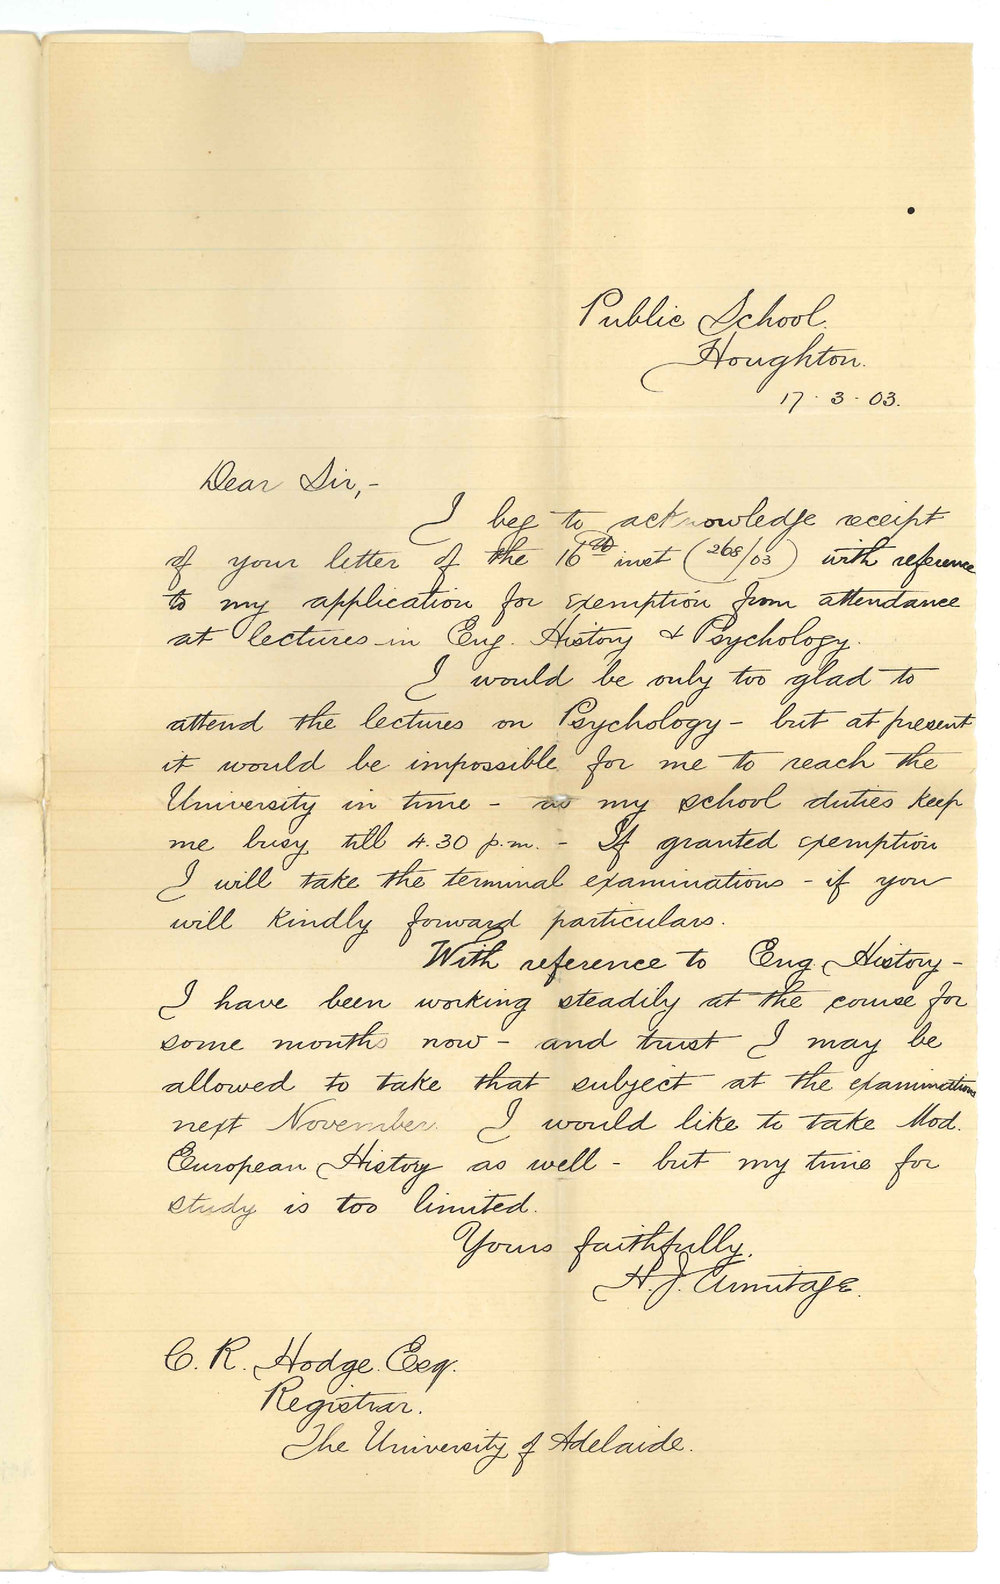 Public School.
Houghton.
17.3.03.
Dear Sir,-
I beg to acknowledge receipt
of your letter of the 16th inst (268/03) with reference
to my application for exemption from attendance
at lectures in Eng. History & Psychology.
I would be only too glad to
attend the lectures on Psychology - but at present
it would be impossible for me to reach the
University in time - as my school duties keep
me busy till 4.30 p.m. - If granted exemption
I will take the terminal examinations - if you
will kindly forward particulars.
With reference to Eng. History -
I have been working steadily at the course for
some months now - and trust I may be
allowed to take that subject at the examinations
next November. I would like to take Mod.
European History as well - but my time for
study is too limited.
Yours faithfully,
H. J. Armitage.
C. R. Hodge. Esq.
Registrar.
The University of Adelaide.